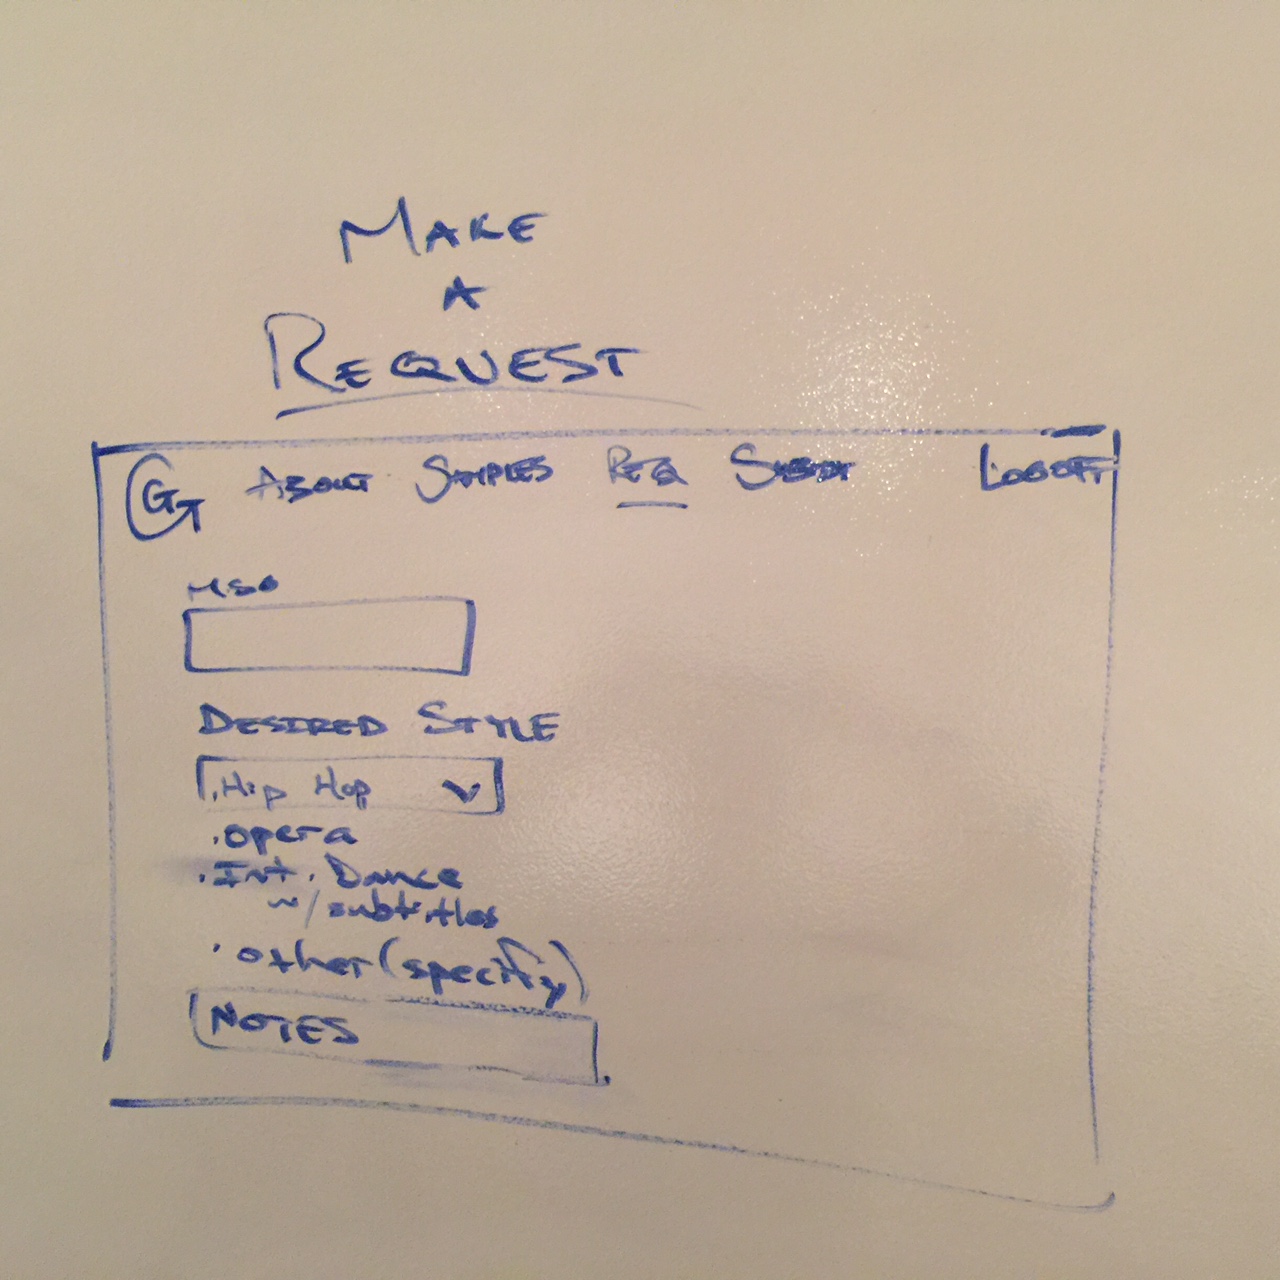 MAKE
A
REQUEST
GT ABOUT SAMPLES REQ LOGOFF
MSG
DESIRED STYLE
.Hip Hop
.opera
.Int. Dance
w/subtitles
.other (specify)
NOTES